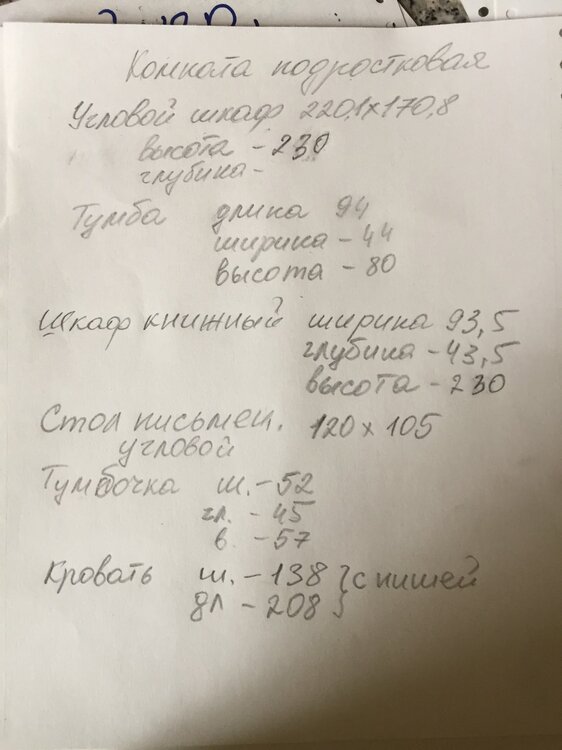 Комната подростковая
Угловой шкаф 220,1х170,8
высота - 230
глубина -
Тумба длина 94
ширина - 44
высота - 80
Шкаф книжный ширина 93,5
глубина - 43,5
высота - 230
Стол письмен. 120 х 105
угловой
Тумбочка ш. - 52
гл. - 45
в. - 57
Кровать ш. - 138 } с нишей
дл - 208 }